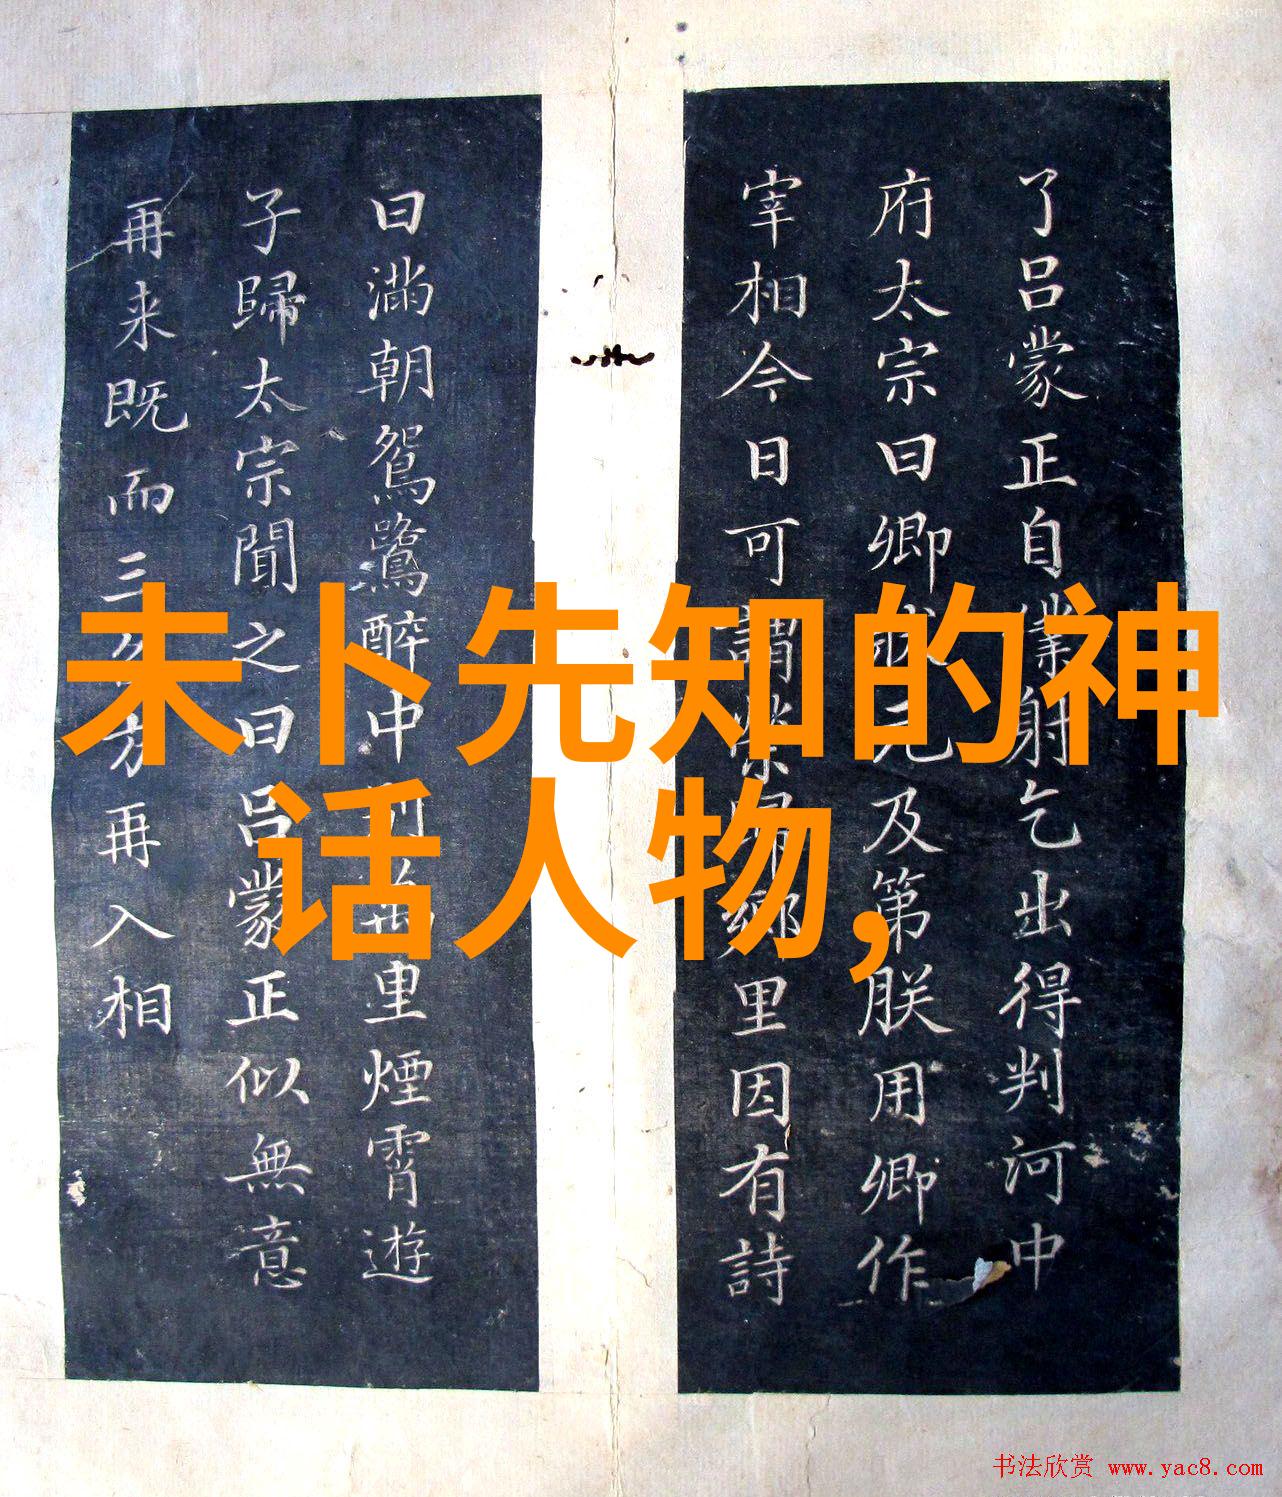 未卜先知的神
话人物,
了呂蒙正自僕射乞出得判河中
府太宗曰卿狀元及第朕用卿作
宰相今日可謂榮歸鄉里因有詩
曰滿朝鴛鷺醉中別萬里煙霄遊
子歸太宗聞之曰呂蒙正似無意
再来既而三方再入相
书法欣赏 www.yac8.com